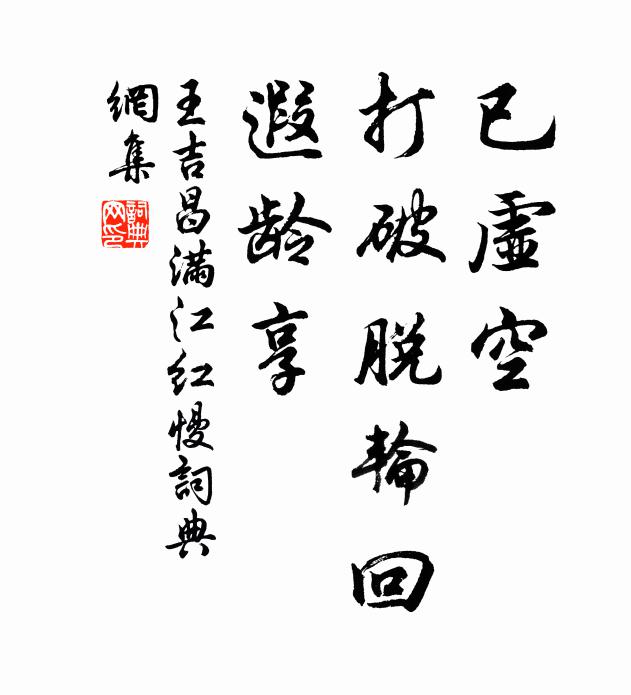 已虛空
打破脫輪回
遐龄享
王吉昌满江红慢詞典
網集
詞典网印